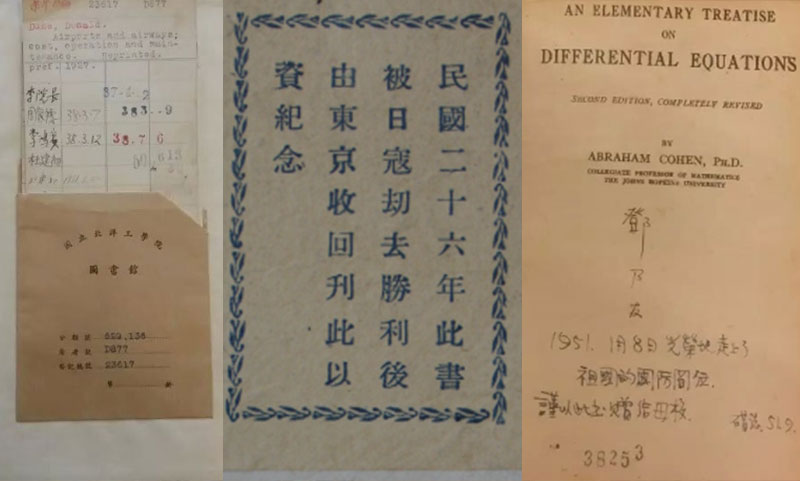 23617 D877
Duke, Donald.
Airports and airways;
cost, operation and main-
tenance. Reprinted.
pref. 1927.
李院長 37-6-2
38.3.7 383--9
38.3.12 38.7 6
國立北洋工學院
圖書館
分類號 629,136
著者號 D877
登記號 23617
民國二十六年此書
被日寇刼去勝利後
由東京收回刊此以
資紀念
AN ELEMENTARY TREATISE
ON
DIFFERENTIAL EQUATIONS
SECOND EDITION, COMPLETELY REVISED
BY
ABRAHAM COHEN, PH.D.
COLLEGIATE PROFESSOR OF MATHEMATICS
THE JOHNS HOPKINS UNIVERSITY
鄧
乃
友
1951. 1月8日光榮地走上了
祖國的國防崗位.
謹以此書贈給母校.
38253